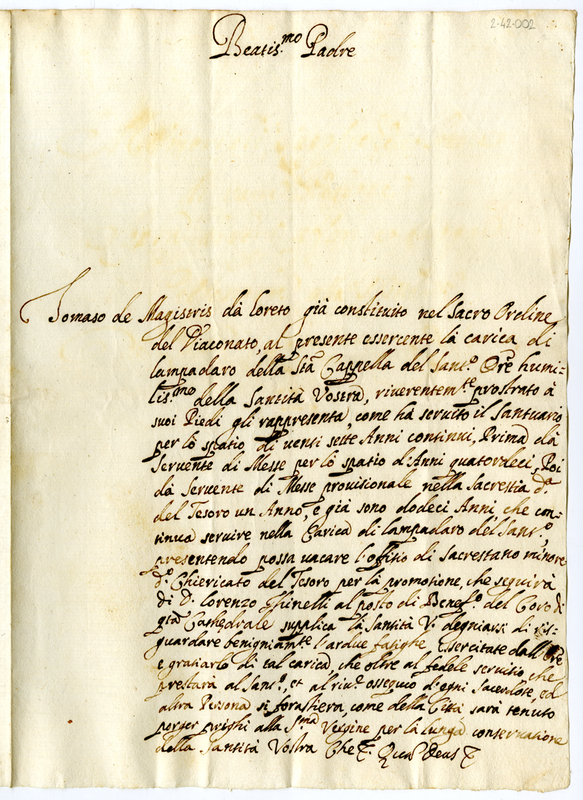 2-42-002
Beatis.mo Padre
Tomaso de Magistris da Loreto già constituito nel Sacro Ordine
del Diaconato, al presente essercente la carica di
lampadaro della Sta Cappella del San.o Ore humi-
lis.mo della Santità Vostra, riverentem.te prostrato à
suoi Piedi gli rappresenta, come hà servito il Santuario
per lo spatio di venti sette Anni continui, Prima dà
Servente di Messe per lo spatio d'Anni quatordeci, Poi
dà Servente di Messe provisionale nella Sacrestia d.a
del Tesoro un Anno, e già sono dodeci Anni, che con-
tinua servire nella Carica di lampadaro del San.o,
presentendo possa vacare l'offitio di Sacrestano minore
d.o Chiericato del Tesoro per la promotione, che seguirà
di D. Lorenzo Ghinelli al posto di Benef.o del Coro di
qta Cathedrale supplica la Santità V. degniarsi di ris-
guardare benigniam.te l'ardue fatighe essercitate dall'Ore
e gratiarlo di tal carica, che oltre al fedele servitio, che
prestarà al San.o, et al riv.o ossequio d'ogni Sacerdote, ed
altra Persona si forastiera, come della Città sarà tenuto
porger prieghi alla S.ma Vergine per la lunga conservatione
della Santità Vostra Che &. Quam Deus &